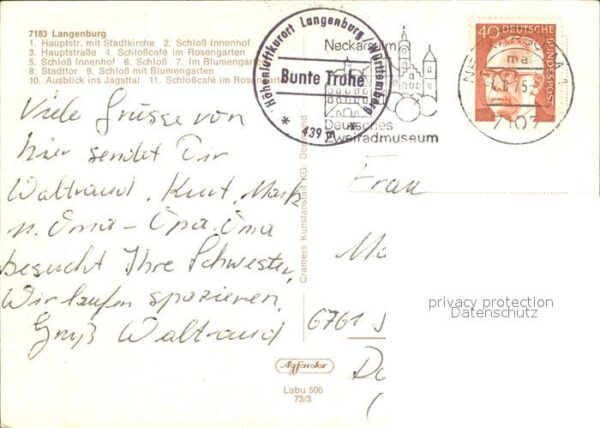 7183 Langenburg
1. Hauptstr. mit Stadtkirche 2. Schloß Innenhof
3. Hauptstraße 4. Schloßcafé im Rosengarten
5. Schloß Innenhof 6. Schloß 7. Im Blumengarten
8. Stadttor 9. Schloß mit Blumengarten
10. Ausblick ins Jagsttal 11. Schloßcafé im Rosen
Höhenluftkurort Langenburg/Württemberg
Bunte Truhe
* 439 m *
Neckarsulm
Deutsches
Zweiradmuseum
NECKARSULM 1
ma
75
7107
40 DEUTSCHE BUNDESPOST
Viele Grüsse von
hier sendet Dir
Waltraud, Kurt, Maik
u. Oma - Opa. Oma
besucht Ihre Schwester,
Wir laufen spazieren,
Gruß Waltraud
Frau
6761
Cramers Kunstanstalt KG, Dortmund
Agfacolor
Labu 506
73/3
privacy protection
Datenschutz